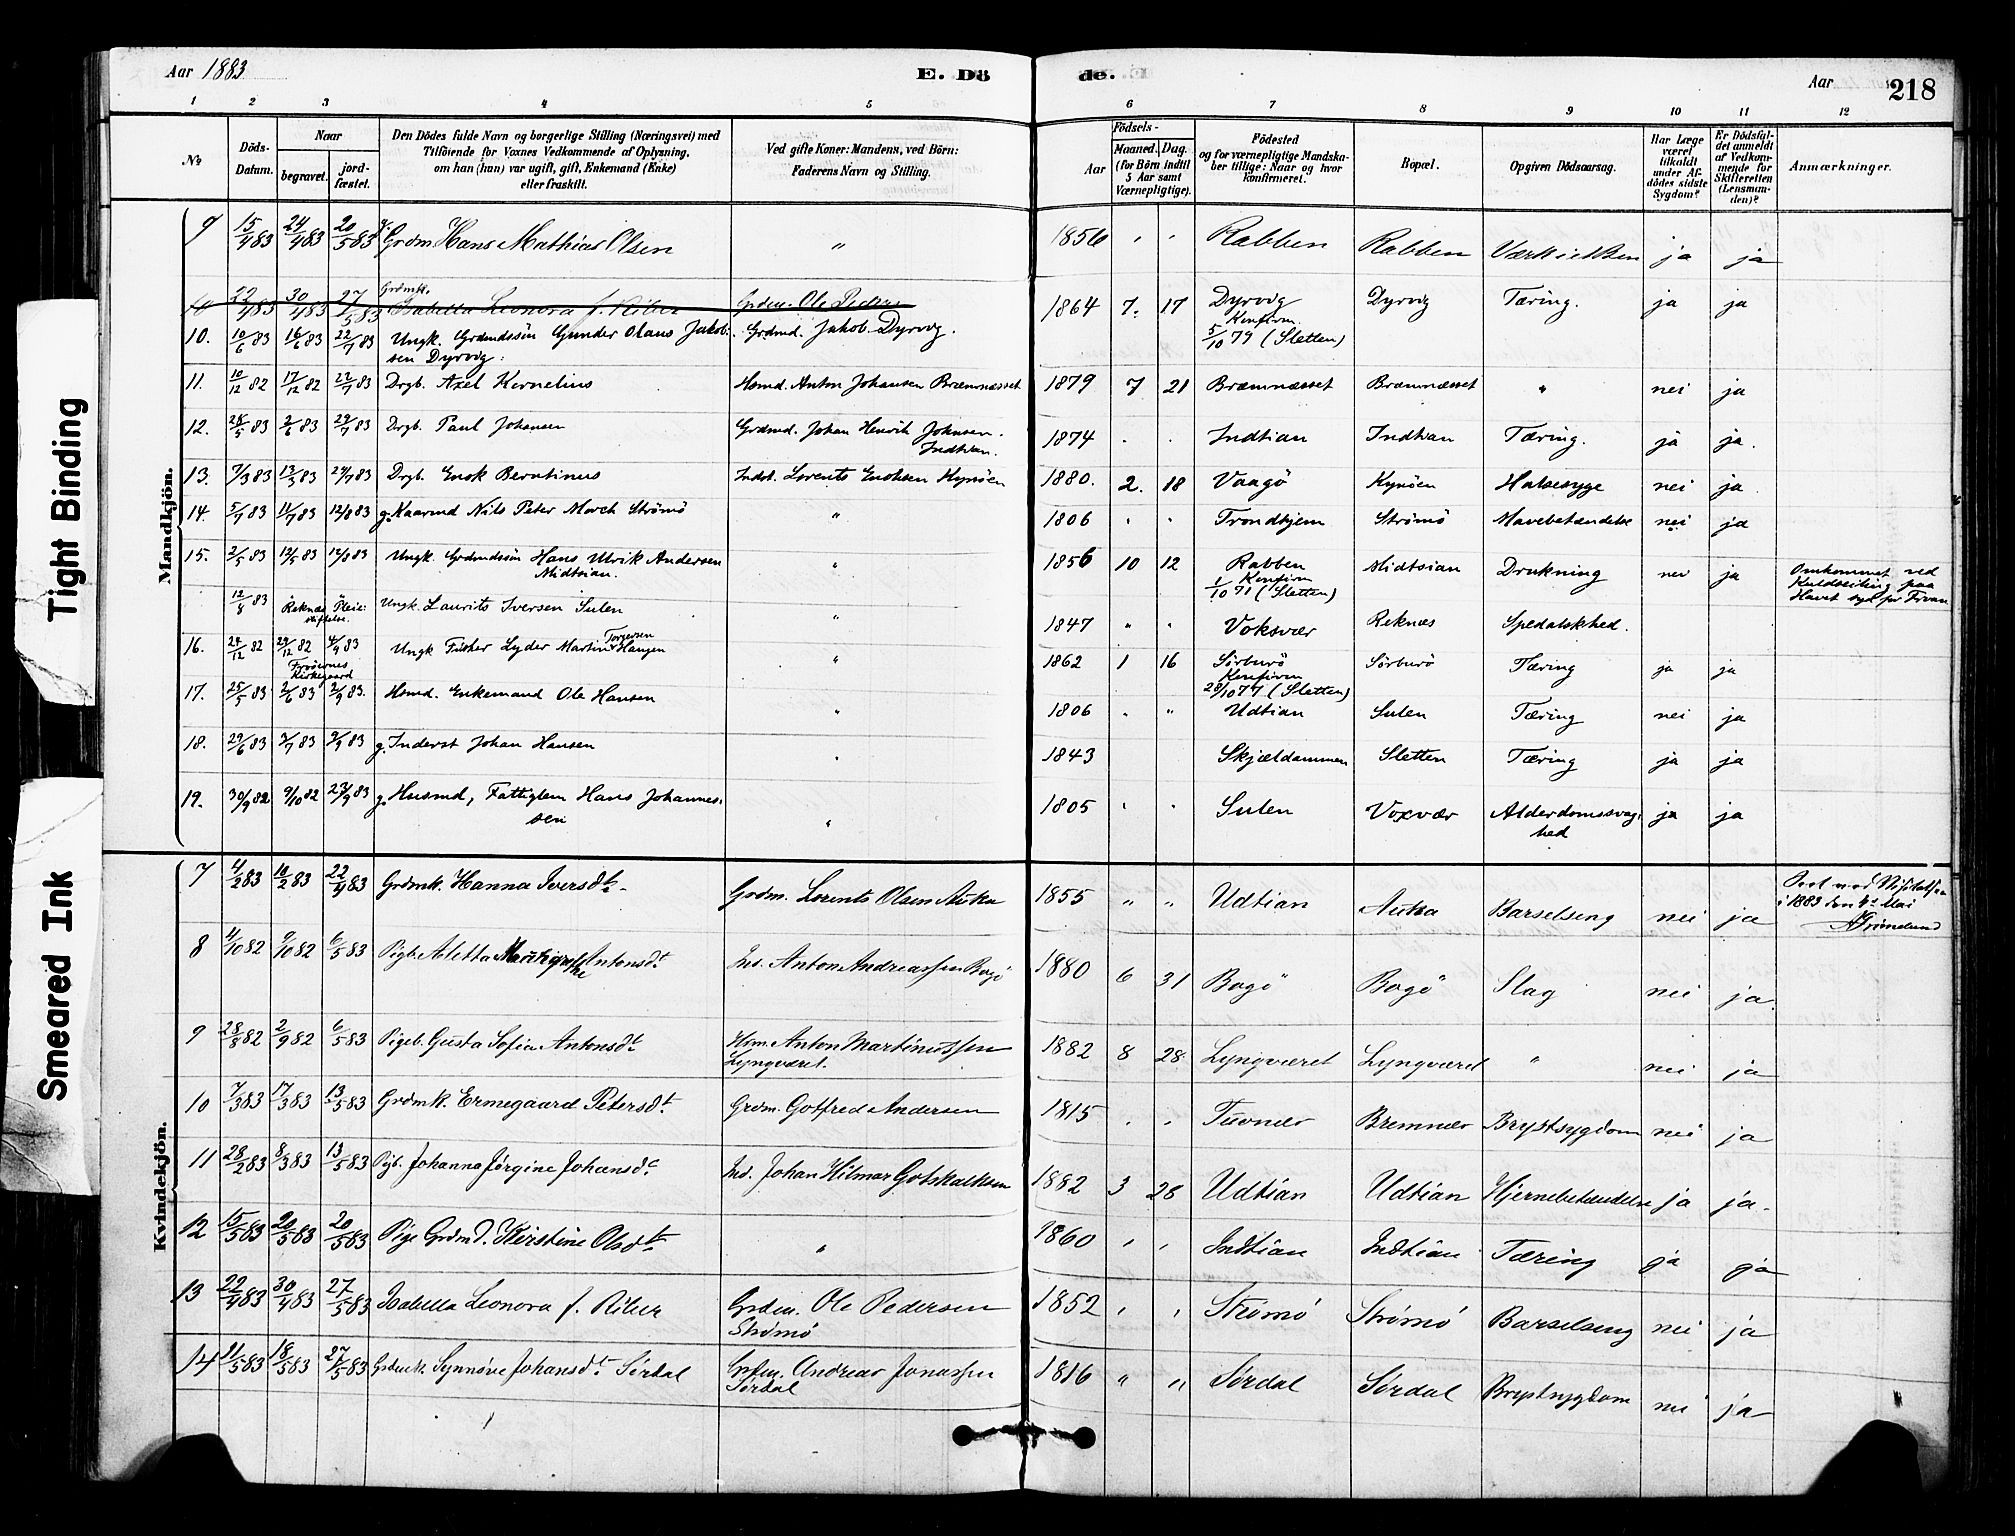 Aar 1883
E. Dö
de.
Aar
218
1 2 3 4 5 6 7 8 9 10 11 12
No
Döds-Datum.
Naar
begravet. jord-fæstet.
Den Dödes fulde Navn og borgerlige Stilling (Næringsvei) med
Tilföiende for Voxnes Vedkommende af Oplysning,
om han (hun) var ugift, gift, Enkemand (Enke)
eller fraskilt.
Ved gifte Koner: Mandens, ved Börn:
Faderens Navn og Stilling.
Födsels-
Aar Maaned. Dag.
(for Börn indtil
5 Aar samt
Værnepligtige).
Födested
og for værnepligtige Mandska-
ber tillige: Naar og hvor
konfirmeret.
Bopæl.
Opgiven Dödsaarsag.
Har Læge
været
tilkaldt
under Af-
dödes sidste
Sygdom?
Er Dödsfal-
det anmeldt
af Vedkom-
mende for
Skifteretten
(Lensman-
den)?
Anmærkninger.
Mandkjön.
9 15/4 83 24/4 83 20/5 83 g. Grdm Hans Mathias Olsen " 1856 " " Rabben Rabben Værk i ja ja
10 22/4 83 30/4 83 27/5 83 Grdmk. Isabella Leonora f. Riber Grdm. Ole Pedersen
10. 10/6 83 16/6 83 22/7 83 Ungk. Grdmdssön Gunder Olaus Jakob- Grdmd. Jakob Dyrvig. 1864 7. 17 Dyrvig Dyrvig Tæring. ja ja
sen Dyrvig. Konfirm. 5/10 79 (Sletten)
11. 10/12 82 17/12 82 22/7 83 Drgb. Axel Kornelius Husmd. Anton Johansen Bræmnæsset 1879 7 21 Bræmnæsset Bræmnæsset " nei ja
12. 28/5 83 2/6 83 29/7 83 Drgb. Paul Johansen Grdmd. Johan Henrik Johnsen. 1874 . . Indtian Indtian Tæring. ja ja.
Indtian.
13. 7/3 83 13/3 83 29/7 83 Drgb. Enok Berntinus Indst. Lorents Enoksen Kynöen 1880. 2. 18 Vaagö Kynöen Halsesyge nei ja
14. 5/7 83 11/7 83 12/8 83 g. Kaarmd Nils Peter Morch Strömö " 1806 " " Trondhjem Strömö Mavebetændelse nei ja
15. 2/5 83 12/5 83 12/8 83 Ungk. Grdmdssön Hans Ulrik Andersen " 1856 10 12 Rabben Midtsian Drukning nei ja Omkommet ved
Midtsian. Konfirm 1/10 71 (Sletten) Kuldseiling paa
Havet syd for
12/8 83 Reknæs Pleie-stiftelse. Ungk. Laurits Iversen Sulen " 1847 " " Voksvær Reknæs Spedalskhed.
16. 24/12 82 29/12 82 4/9 83 Ungk Fisker Lyder Martin Torgersen Haugen " 1862 1 16 Sörburö Sörburö Tæring ja ja
Fröiernes Kirkegaard Konfirm 28/10 77 (Sletten)
17. 25/5 83 2/6 83 2/9 83. Hsmd. Enkemand Ole Hansen " 1806 " " Udtian Sulen Tæring nei ja
18. 29/6 83 3/7 83 9/9 83 g. Inderst Johan Hansen " 1843 Skjældammen Sletten Tæring ja ja
19. 30/9 82 9/10 82 23/9 83 g. Husmd, Fattiglem Hans Johannes- " 1805 " " Sulen Voxvær Alderdomssvag- ja ja
sen hed
Kvindekjön.
7 4/2 83 10/2 83 22/4 83 Grdmk. Hanna Iversdt. Grdm. Lorents Olsen Auka 1855 " " Udtian Auka Barselseng nei ja
i 1883 den Mai
Grimelund
8 4/10 82 9/10 82 6/5 83 Pigb. Aletta Antonsdt Ins. Anton Andreassen Bogö 1880 6 31 Bogö Bogö Slag nei ja
9 28/8 82 2/9 82 6/5 83 Pigeb. Gusta Sofia Antonsdt Hsm. Anton Martinussen 1882 8 28 Lyngværet Lyngværet " nei ja
Lyngværet.
10 7/3 83 17/3 83 13/5 83 Grdmk. Ermegaard Petersdt. Grdm. Gotfred Andersen 1815 . . Tuvnær Bremnær Brystsygdom nei ja
11 28/2 83 8/3 83 13/5 83 Pigb. Johanna Jørgine Johansdt Ins. Johan Hilmar Gotskalksen 1882 3 28 Udtian Udtian Hjernebetændelse ja ja.
12 15/5 83 20/5 83 20/5 83 Pige Grdmd. Kirstine Olsdt " 1860 " " Indtian Indtian Tæring ja ja
13 22/4 83 30/4 83 27/5 83 Isabella Leonora f. Riber Grdm. Ole Pedersen 1852 " " Strömö Strömö Barselseng nei ja
Strömö
14 11/5 83 18/5 83 27/5 83 Grdmk. Synnöve Johansdt. Sördal Grdm. Andreas Jonassen 1816 " " Sördal Sördal Brystsygdom nei ja
Sördal
Tight Binding
Smeared Ink